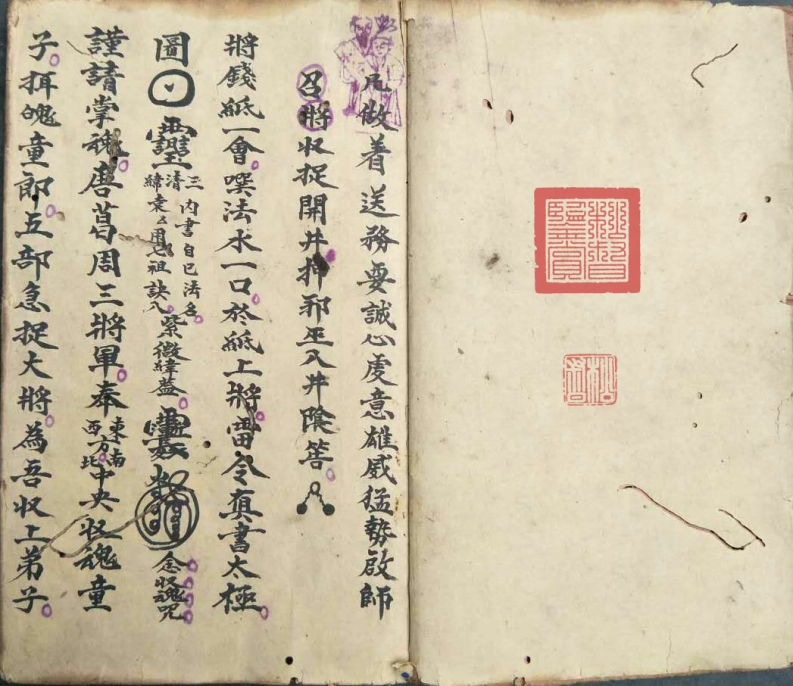 凡做着送務要誠心虔意雄威猛勢啟師
召將收捉開井押邪巫入井陰筶
將錢紙一會噀法水一口於紙上將雷令真書太極
圖 靈 三清 内書自己法名 諱 用七祖訣入 紫微諱蓋 念收魂咒
謹請掌魂唐葛周三將軍奉東南西方北中央收魂童
子挕魄童郎五部急捉大將為吾收上弟子